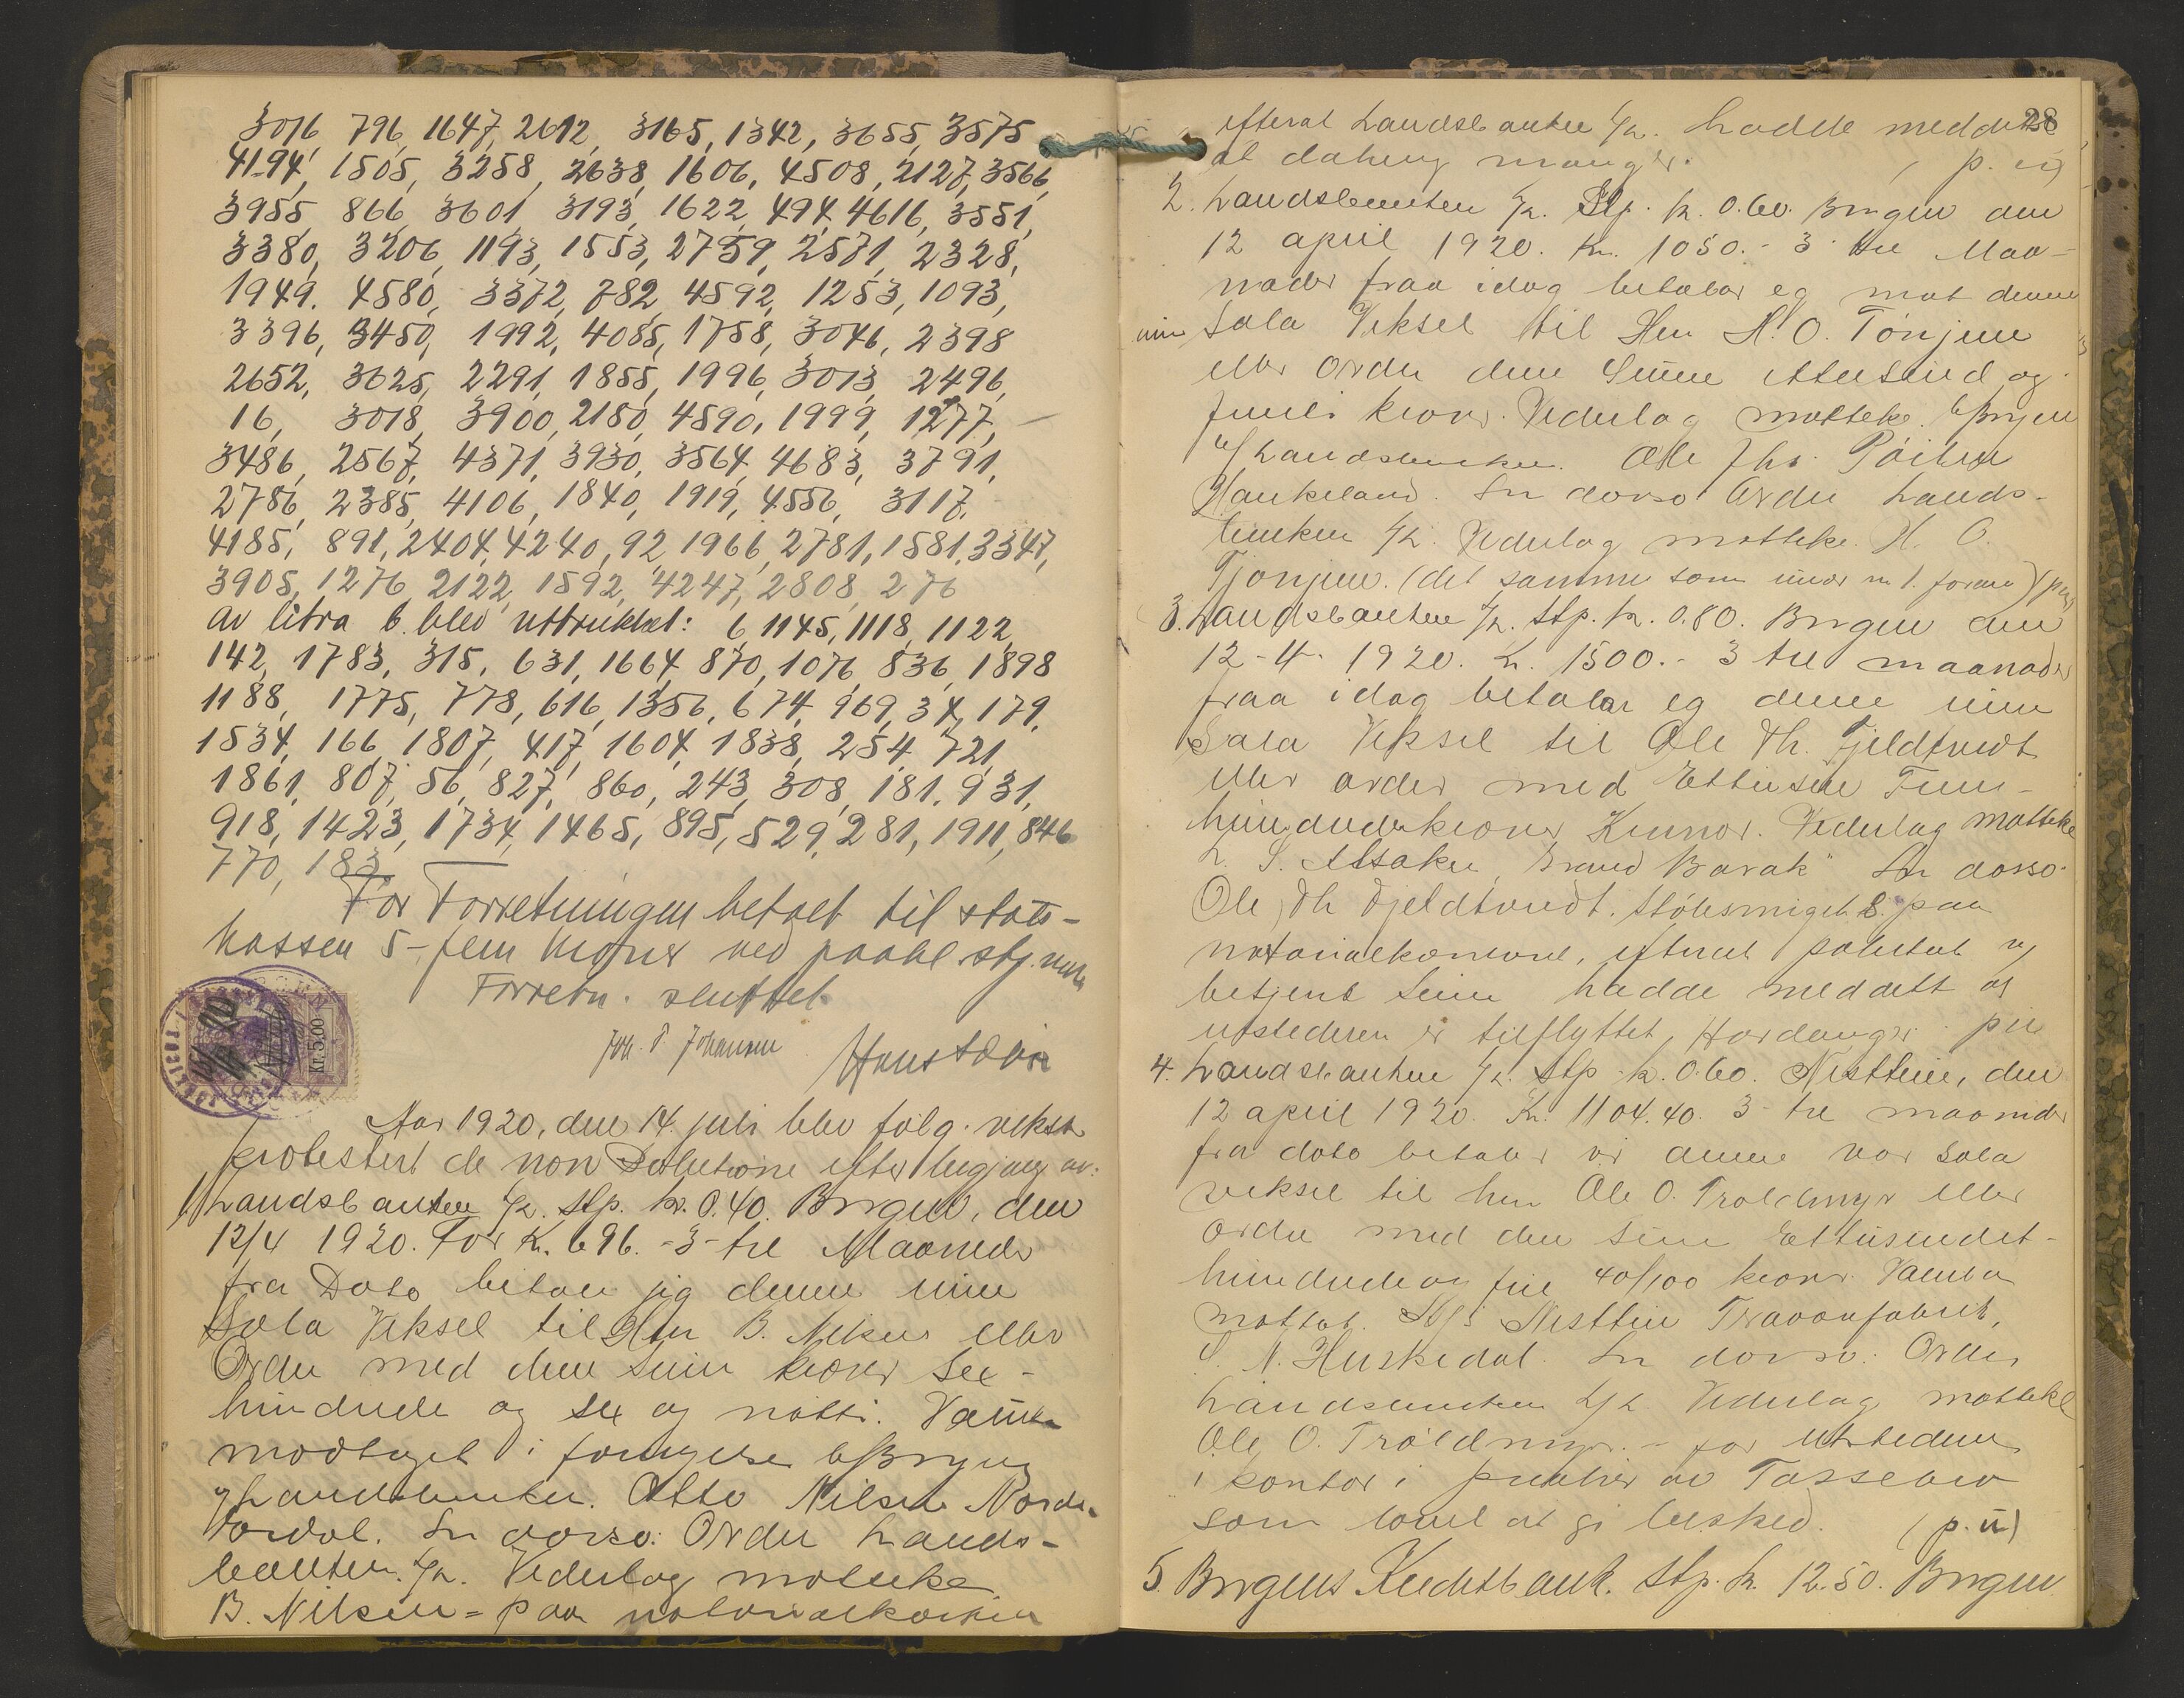 3016, 796, 1647, 2612, 3165, 1342, 3655, 3575
4194, 1505, 3258, 2638, 1606, 4508, 2127, 3566,
3955, 866, 3601, 3193, 1622, 494, 4616, 3551,
3380, 3206, 1193, 1553, 2759, 2571, 2328,
1949. 4580, 3372, 782, 4592, 1253, 1093,
3396, 3450, 1992, 4085, 1758, 3046, 2398
2652, 3625, 2291, 1855, 1996, 3013, 2496,
16, 3018, 3900, 2180, 4590, 1999, 1277,
3486, 2567, 4371, 3930, 3564, 4683, 3791,
2786, 2385, 4106, 1840, 1919, 4556, 3117,
4185, 891, 2404, 4240, 92, 1966, 2781, 1581, 3347,
3905, 1276, 2122, 1592, 4247, 2808, 276
av litra b. blev uttrukket: 6, 1145, 1118, 1122,
142, 1783, 315, 631, 1664, 870, 1076, 836, 1898
1188, 1775, 778, 616, 1356, 674, 969, 34, 179,
1534, 166, 1807, 417, 1604, 1838, 254, 721,
1861, 807, 56, 827, 860, 243, 308, 181, 931,
918, 1423, 1734, 1465, 895, 529, 281, 1911, 846
770, 183.
For Forretningen betalt til stats-
kassen 5- fem kroner ved paakl. stp. merke
Forretn. sluttet.
Kr. 5.00
Joh. P. Johannsen
Aar 1920, den 14. juli blev følg. veksler
protestert de non Solutione efter begjæring av:
1) Landsbanken A/L. Stp. kr. 0.40. Bergen, den
12/4 1920. For Kr. 696. - 3 - tre Maaneder
fra Dato betaler jeg denne min
Sola Veksel til Herr B. Nilsen eller
Ordre med den Sum kroner Sex-
hundrede og sex og nitti. Valuta
modtaget i
Landsbanken. Otto Nilsen Nord-
In dorso: Ordre Lands-
banken A/L. Vederlag motteke
B. Nilsen = paa notarialkontoret
28
efterat Landsbanken A/L. hadde meddelt
at dekning mangler. (p. u)
2. Landsbanken A/L. Stp. kr. 0.60. Bergen den
12 april 1920. Kr. 1050. - 3 tre Maa-
nader fraa idag betalar eg mot denne
min Sola Veksel til Herr H. O. Tonjum
eller Ordre den Summe ettusund og
femti kroner. Vederlag motteke. Bergen
Landsbanken. Ole Jhs.
Haukeland. In dorso Ordre Lands-
banken A/L. Vederlag motteke. H. O.
Tjonjum. (det samme som under nr 1. foran)
3. Landsbanken A/L. Stp. kr. 0.80. Bergen den
12-4- 1920. Kr. 1500. - 3 tre maanader
fraa idag betalar eg denne min
Sola Veksel til Ole Th. Fjeldtvedt
eller order med Ettusen Fem-
hundradekroner Kunnor. Vederlag motteke
In dorso.
Ole Th Fjeldtvedt. Stølesmuget 8. paa
notarialkontoret, efterat politiet ved
betjent hadde meddelt at
utstederen er tilflyttet Hardanger.
4. Landsbanken A/L. Stp. kr. 0.60. Nesttun, den
12 april 1920. Kr. 1104.40. 3 - tre maaneder
fra dato betaler vi denne vor Sola
veksel til herr Ole O. Troldmyr eller
ordre med den sum Ettusindet-
hundrede og fire 40/100 kroner. Valuta
mottat. A/S Nesttun Travarefabrik,
N. Huskedal. In dorso: Ordre
Landsbanken A/L Vederlag motteke
Ole O. Troldmyr. - for utstederen
i kontor i
som lovet at gi besked. (p. u)
5. Bergens Kreditbank. Stp. kr. 12.50. Bergen